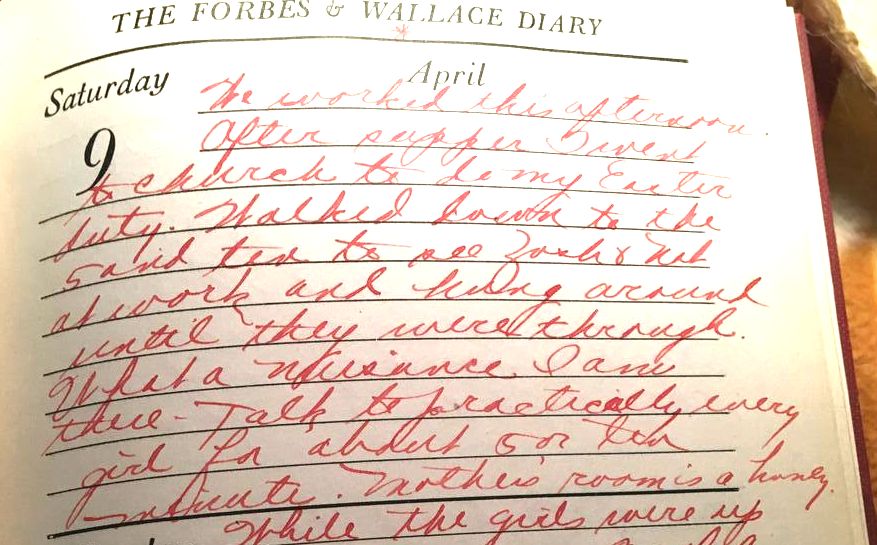 THE FORBES & WALLACE DIARY
Saturday April
9
We worked this afternoon.
After supper I went
to church to do my Easter
duty. Walked down to the
5 and ten to see Zosh & Nat
at work and hung around
until they were through.
What a nuisance I am
there - Talk to practically every
girl for about 5 or ten
minute. Mother's room is a honey.
While the girls were up